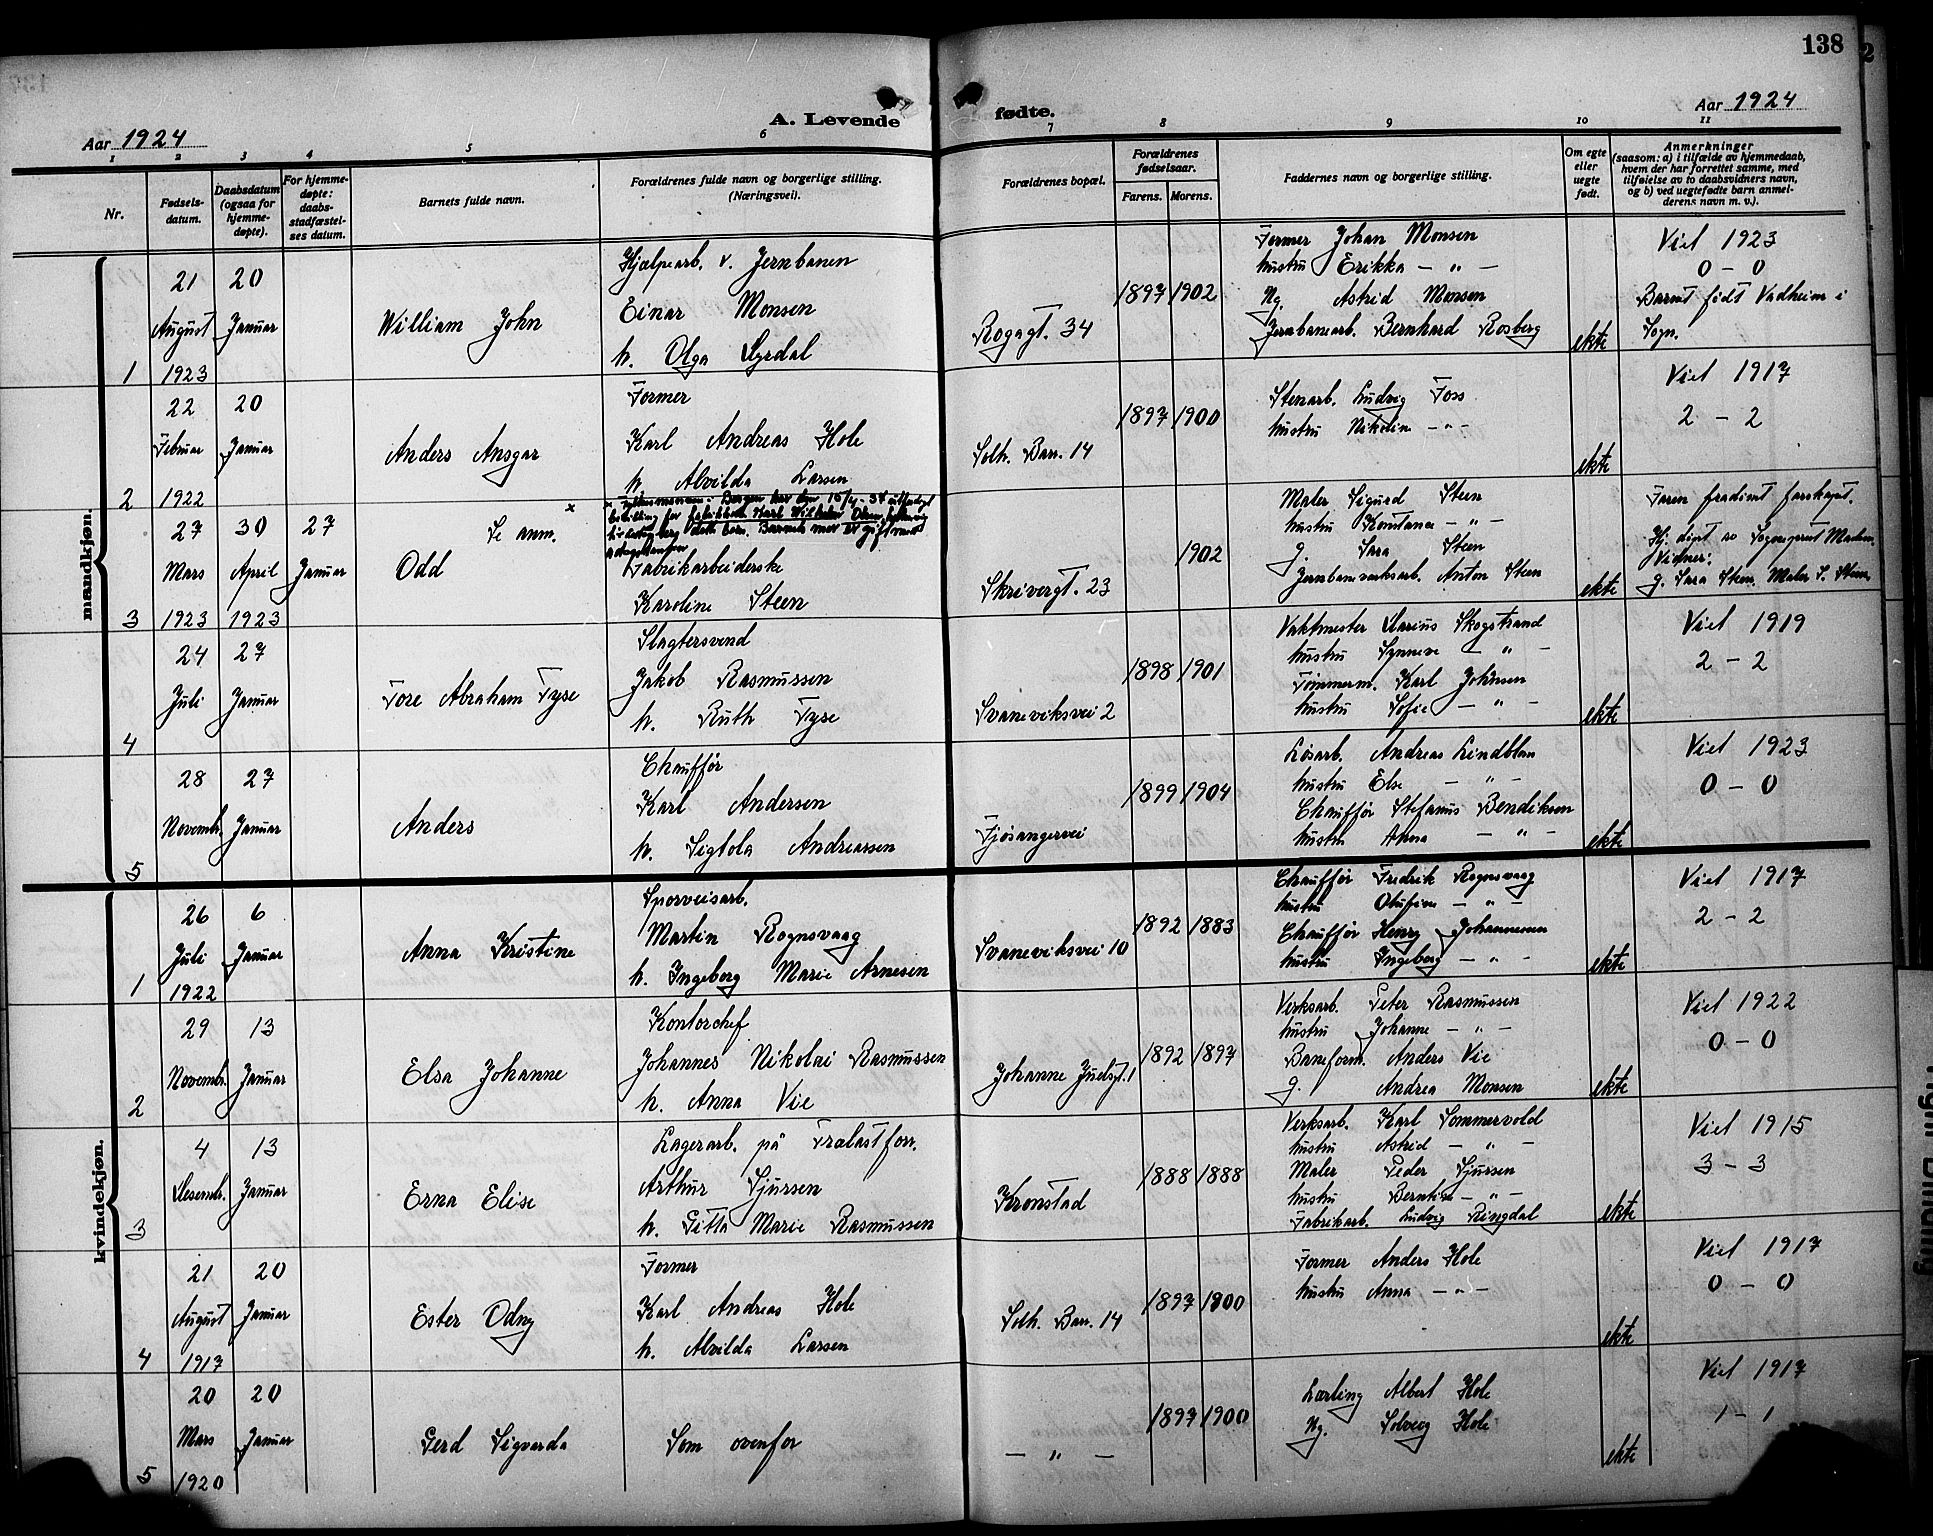 138
Aar 1924
A. Levende
fødte.
Aar 1924
1 2 3 4 5 6 7 8 9 10 11
Nr.
Fødsels-
datum.
Daabsdatum
(ogsaa for
hjemme-
døpte).
For hjemme-
døpte:
daabs-
stadfæstel-
ses datum.
Barnets fulde navn.
Forældrenes fulde navn og borgerlige stilling.
(Næringsvei).
Forældrenes bopæl.
Forældrenes
fødselsaar.
Farens. Morens.
Faddernes navn og borgerlige stilling.
Om egte
eller
uegte
født.
Anmerkninger
(saasom: a) i tilfælde av hjemmedaab,
hvem der har forrettet samme, med
tilføielse av to daabsvidners navn,
og b) ved uegtefødte barn anmel-
derens navn m. v.).
mandkjøn.
1
21
August
1923
20
Januar
William John
Hjælpearb. v. Jernbanen
Einar Monsen
h. Olga Syrdal
Rogagt. 34
1897 1902
Former Johan Monsen
hustru Erikka - " -
Ug. Astrid Monsen
Jernbanearb. Bernhard Rosberg
ekte
Viet 1923
0 - 0
Barnet født Vadheim i
Sogn.
2
22
Februar
1922
20
Januar
Anders Ansgar
Former
Karl Andreas Hole
h. Alvilda Larsen
Solh. Barr. 14
1897 1900
Stenarb. Ludvig Foss
hustru Nikolin - " -
ekte
Viet 1917
2 - 2
3
27
Mars
1923
30
April
1923
27
Januar
Odd
Se anm. x
Fabrikarbeiderske
Karoline Steen
Skrivergt. 23
1902
Maler Sigurd Steen
hustru Konstanse - " -
g. Sara Steen
Jernbaneverksarb. Anton Steen
ekte
Faren fradømt farskapet.
Hj. døpt av Sogneprest
Vidner:
g. Sara Steen, Maler S. Steen
4
24
Juli
27
Januar
Tore Abraham Tyse
Slagtersvend
Jakob Rasmussen
h. Ruth Tyse
Svaneviksvei 2
1898 1901
Vaktmester Marius Skogstrand
hustru Synneve - " -
Tømmerm. Karl Johnsen
hustru Sofie - " -
ekte
Viet 1919
2 - 2
5
28
Novemb.
27
Januar
Anders
Chauffør
Karl Andersen
h. Sigtola Andreassen
Fjøsangervei
1899 1904
Løsarb. Andreas Lindblau
hustru Else - " -
Chauffør Stefanus Bendiksen
hustru Anna - " -
ekte
Viet 1923
0 - 0
kvindekjøn.
1
26
Juli
1922
6
Januar
Anna Kristine
Sporveisarb.
Martin Rognsvaag
h. Ingeborg Marie Arnesen
Svaneviksvei 10
1892 1883
Chauffør Fredrik Rognsvaag
hustru Olufine - " -
Chauffør Henry Johannesen
hustru Ingeborg - " -
ekte
Viet 1917
2 - 2
2
29
Novemb.
13
Januar
Elsa Johanne
Kontorchef
Johannes Nikolai Rasmussen
h. Anna Vie
Johanne Juelsgt. 1
1892 1897
Verksarb. Peter Rasmussen
hustru Johanne - " -
Baneform. Anders Vie
g. Andrea Monsen
ekte
Viet 1922
0 - 0
3
4
Desembr.
13
Januar
Erna Elise
Lagerarb. på Trælastforr.
Arthur Sjursen
h. Gitta Marie Rasmussen
Kronstad
1888 1888
Verksarb. Karl Sommervold
hustru Astrid - " -
Maler Peder Sjursen
hustru Berntine - " -
Fabrikarb. Ludvig Ringdal
ekte
Viet 1915
3 - 3
4
21
August
1917
20
Januar
Ester Odny
Former
Karl Andreas Hole
h. Alvilda Larsen
Solh. Barr. 14
1897 1900
Former Anders Hole
hustru Anna - " -
ekte
Viet 1917
0 - 0
5
20
Mars
1920
20
Januar
Gerd Sigvarda
Som ovenfor
- " -
1897 1900
Lærling Albert Hole
Ug. Solveig Hole
ekte
Viet 1917
1 - 1